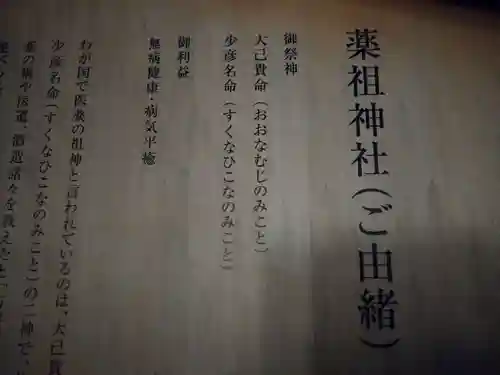 薬祖神社(ご由緒)
御祭神
大己貴命(おおなむじのみこと)
少彦名命(すくなひこなのみこと)
御利益
無病健康・病気平癒
わが国で医薬の祖神と言われているのは、大己貴
少彦名命(すくなひこなのみこと)の二神で、
薬の術や伝道、酒造諸々を教えた